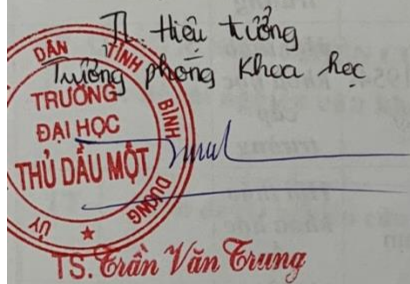 TL Hiệu trưởng
Trưởng phòng Khoa học
ỦY DÂN TỈNH BÌNH DƯƠNG
TRƯỜNG
ĐẠI HỌC
THỦ DẦU MỘT
TS. Trần Văn Trung